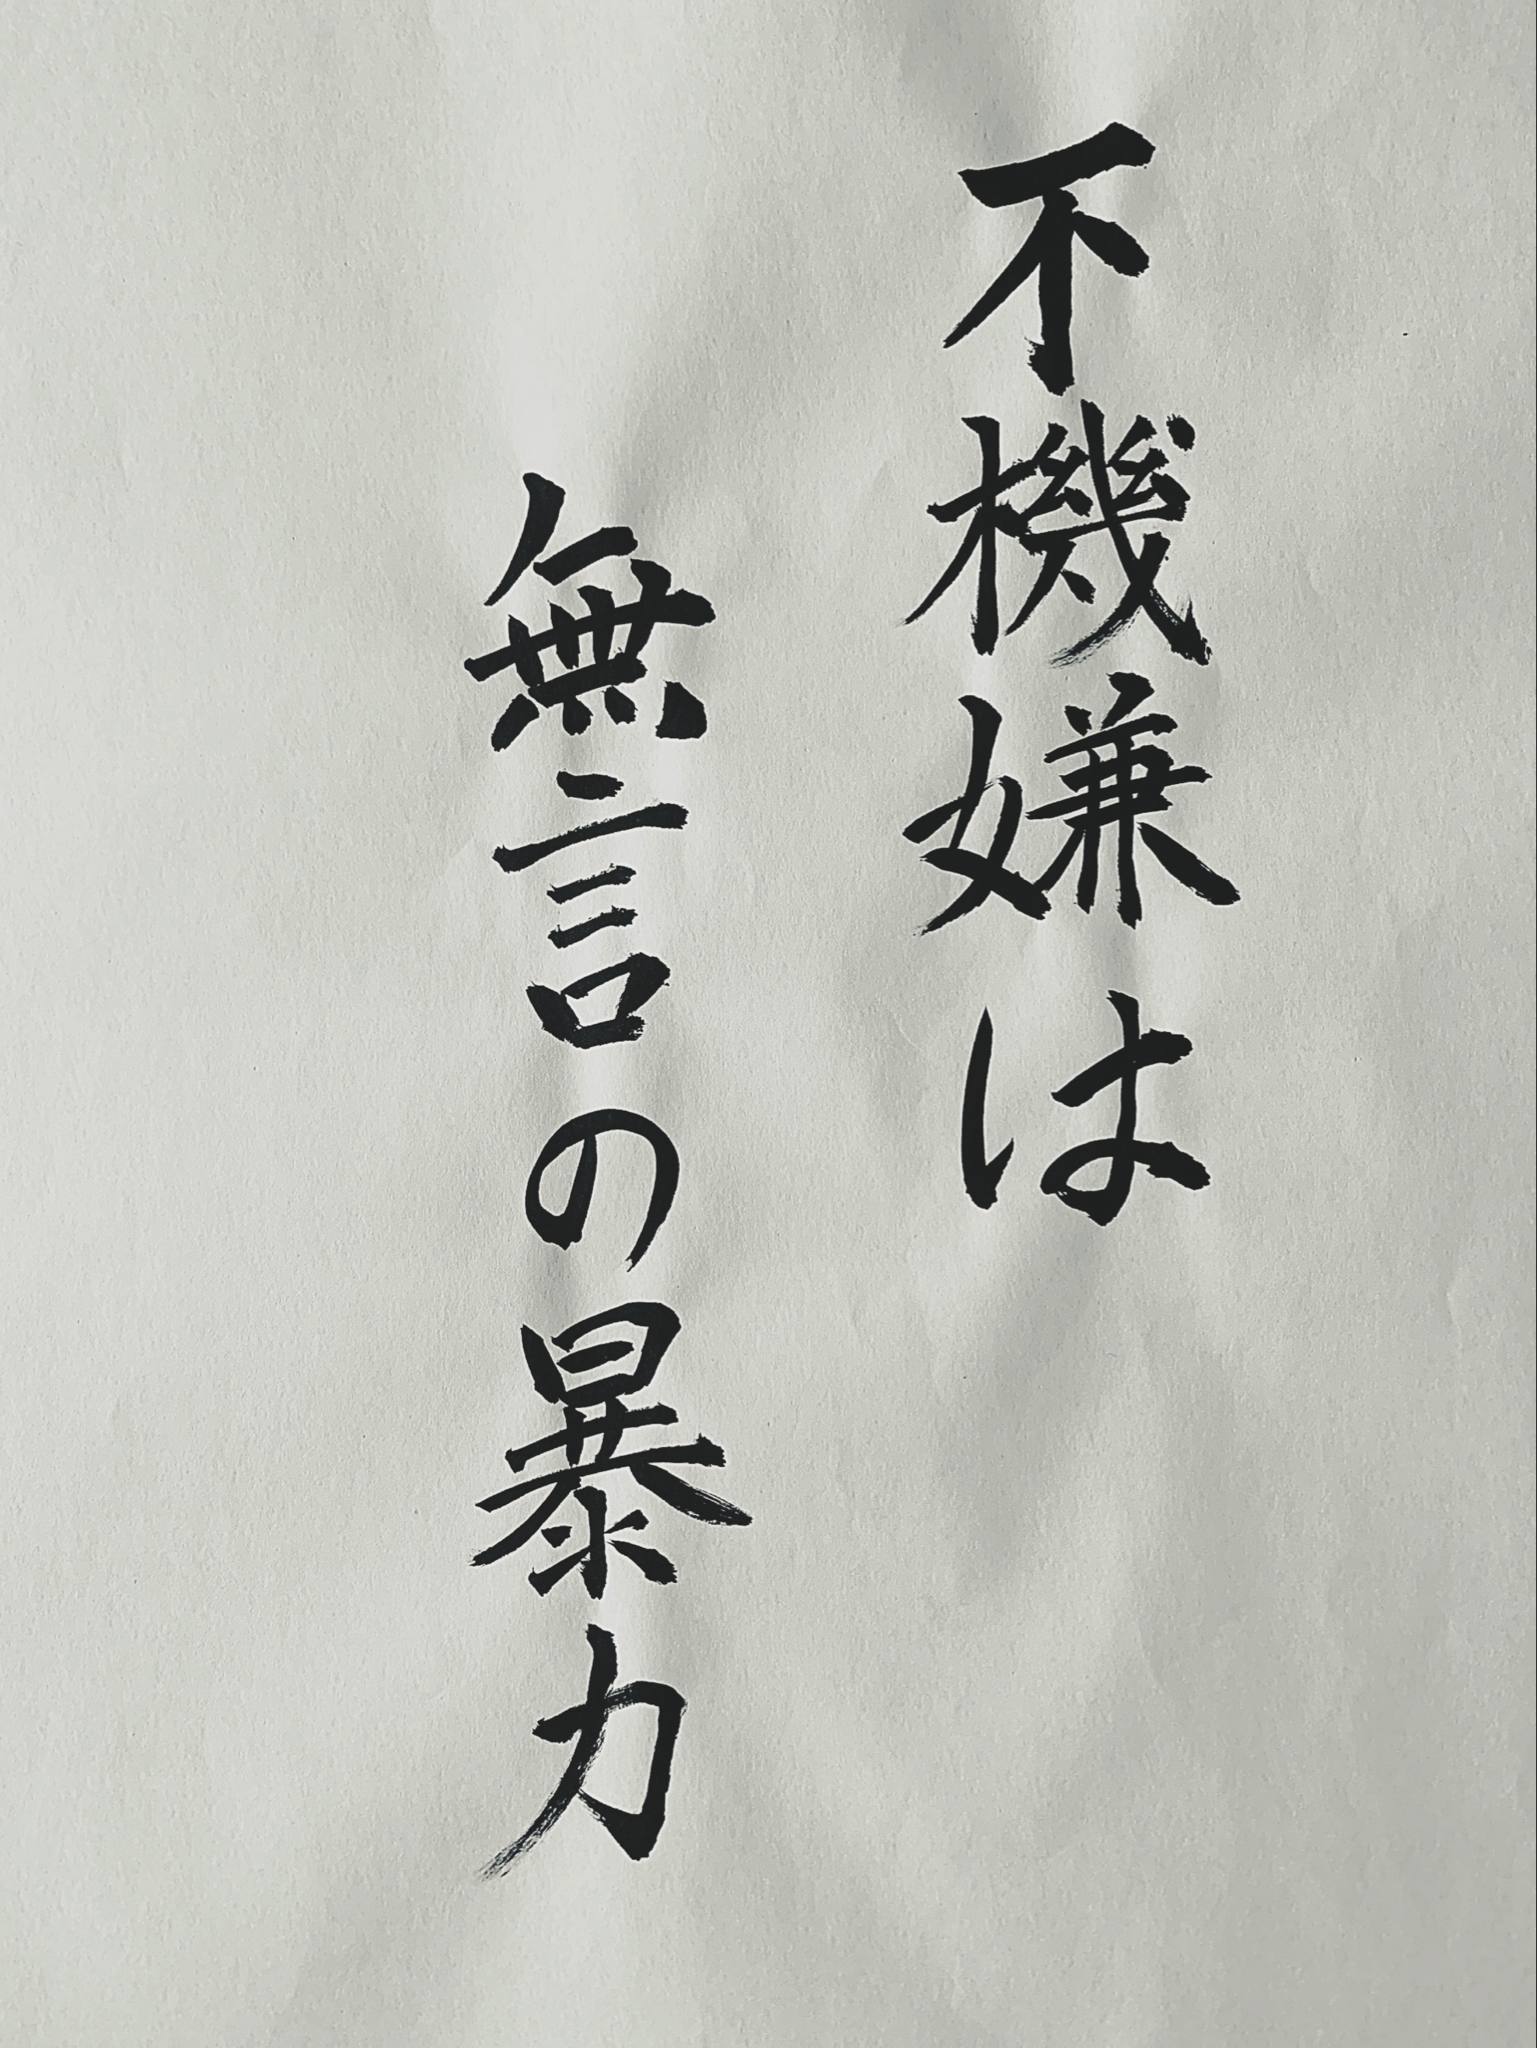 不機嫌は
無言の暴力